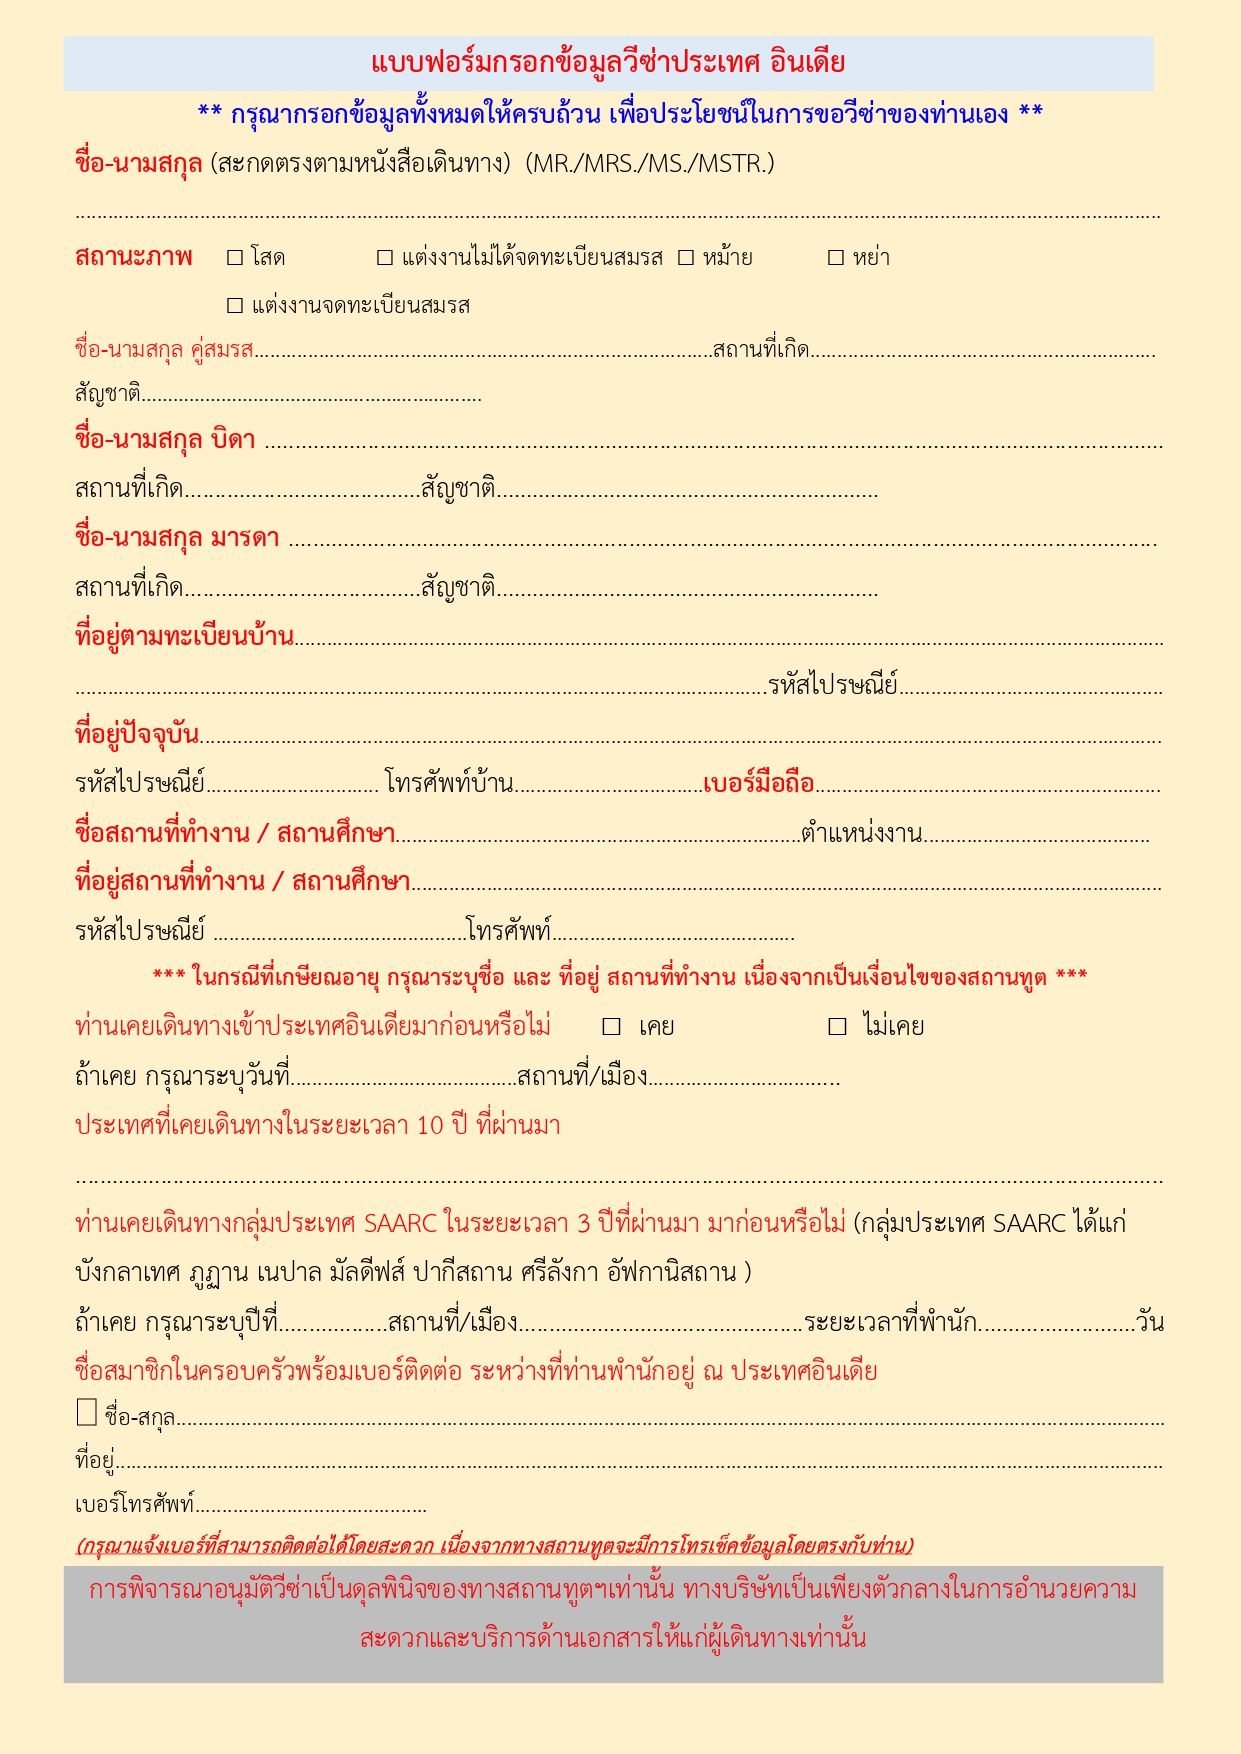 แบบฟอร์มกรอกข้อมูลวีซ่าประเทศ อินเดีย
** กรุณากรอกข้อมูลทั้งหมดให้ครบถ้วน เพื่อประโยชน์ในการขอวีซ่าของท่านเอง **
ชื่อ-นามสกุล (สะกดตรงตามหนังสือเดินทาง) (MR./MRS./MS./MSTR.)
................................................................................
สถานะภาพ ☐ โสด ☐ แต่งงานไม่ได้จดทะเบียนสมรส ☐ หม้าย ☐ หย่า
☐ แต่งงานจดทะเบียนสมรส
ชื่อ-นามสกุล คู่สมรส........................................สถานที่เกิด........................................
สัญชาติ........................................
ชื่อ-นามสกุล บิดา ................................................................................
สถานที่เกิด........................................สัญชาติ........................................
ชื่อ-นามสกุล มารดา ................................................................................
สถานที่เกิด........................................สัญชาติ........................................
ที่อยู่ตามทะเบียนบ้าน................................................................................
................................................................................รหัสไปรษณีย์........................................
ที่อยู่ปัจจุบัน................................................................................
รหัสไปรษณีย์................................ โทรศัพท์บ้าน................................เบอร์มือถือ........................................
ชื่อสถานที่ทำงาน / สถานศึกษา........................................ตำแหน่งงาน........................................
ที่อยู่สถานที่ทำงาน / สถานศึกษา................................................................................
รหัสไปรษณีย์ ........................................โทรศัพท์........................................
*** ในกรณีที่เกษียณอายุ กรุณาระบุชื่อ และ ที่อยู่ สถานที่ทำงาน เนื่องจากเป็นเงื่อนไขของสถานทูต ***
ท่านเคยเดินทางเข้าประเทศอินเดียมาก่อนหรือไม่ ☐ เคย ☐ ไม่เคย
ถ้าเคย กรุณาระบุวันที่........................................สถานที่/เมือง........................................
ประเทศที่เคยเดินทางในระยะเวลา 10 ปี ที่ผ่านมา
................................................................................
ท่านเคยเดินทางกลุ่มประเทศ SAARC ในระยะเวลา 3 ปีที่ผ่านมา มาก่อนหรือไม่ (กลุ่มประเทศ SAARC ได้แก่
บังกลาเทศ ภูฏาน เนปาล มัลดีฟส์ ปากีสถาน ศรีลังกา อัฟกานิสถาน )
ถ้าเคย กรุณาระบุปีที่..................สถานที่/เมือง........................................ระยะเวลาที่พำนัก..........................วัน
ชื่อสมาชิกในครอบครัวพร้อมเบอร์ติดต่อ ระหว่างที่ท่านพำนักอยู่ ณ ประเทศอินเดีย
☐ ชื่อ-สกุล................................................................................
ที่อยู่................................................................................
เบอร์โทรศัพท์........................................
(กรุณาแจ้งเบอร์ที่สามารถติดต่อได้โดยสะดวก เนื่องจากทางสถานทูตจะมีการโทรเช็คข้อมูลโดยตรงกับท่าน)
การพิจารณาอนุมัติวีซ่าเป็นดุลพินิจของทางสถานทูตฯเท่านั้น ทางบริษัทเป็นเพียงตัวกลางในการอำนวยความ
สะดวกและบริการด้านเอกสารให้แก่ผู้เดินทางเท่านั้น